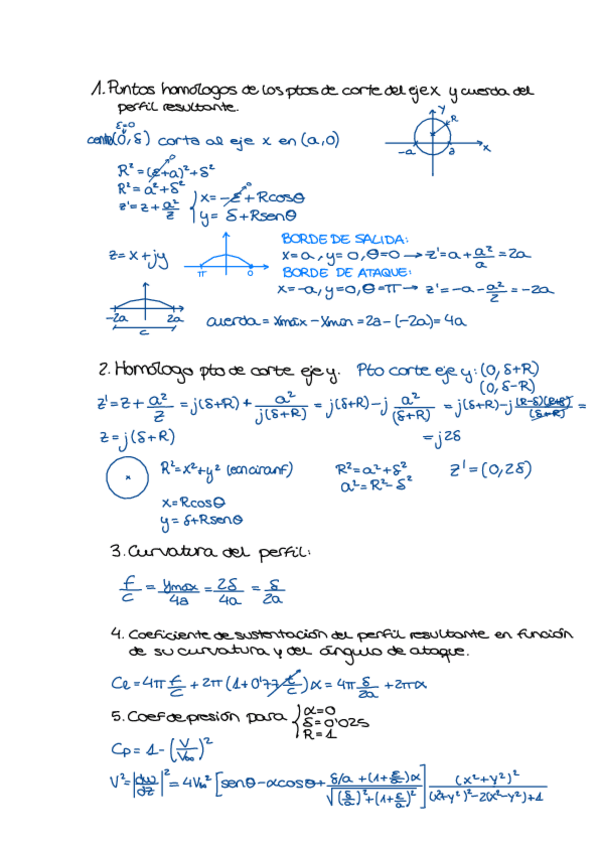 1. Puntos homólogos de los ptos de corte del eje x y cuerda del
perfil resultante.
ε=0
centro(0, δ) corta al eje x en (a,0)
y
R
-a
a
x
0
R² = (ε+a)²+δ²
R² = a²+δ²
z' = z + a²/z
0
x = -ε + Rcosθ
y = δ + Rsenθ
z = x+jy
π
0
BORDE DE SALIDA:
x=a, y=0, θ=0 → z' = a + a²/a = 2a
BORDE DE ATAQUE:
x=-a, y=0, θ=π → z' = -a - a²/z = -2a
-2a
2a
c
cuerda = xmáx - xmín = 2a - (-2a) = 4a
2. Homólogo pto de corte eje y. Pto corte eje y: (0, δ+R)
(0, δ-R)
z' = z + a²/z = j(δ+R) + a²/j(δ+R) = j(δ+R) - j a²/(δ+R) = j(δ+R) - j (R-δ)(R+δ)/(δ+R) =
z = j(δ+R)
= j2δ
x
R² = x²+y²
R² = a²+δ²
a² = R²-δ²
z' = (0, 2δ)
x = Rcosθ
y = δ+Rsenθ
3. Curvatura del perfil:
f/c = ymáx/4a = 2δ/4a = δ/2a
4. Coeficiente de sustentación del perfil resultante en función
de su curvatura y del ángulo de ataque.
Cl = 4π f/c + 2π (1+0'77 t/c)α = 4π δ/2a + 2πα
5. Coef de presión para { α=0
δ=0'025
R=1
Cp = 1 - (V/V∞)²
V² = |dw/dz|² = 4V∞² [senθ - αcosθ + δ/a + (1+ε/a)α / √((δ/a)² + (1+ε/a)²)] (x²+y²)² / (x²+y²)² - 2(x²-y²)+1